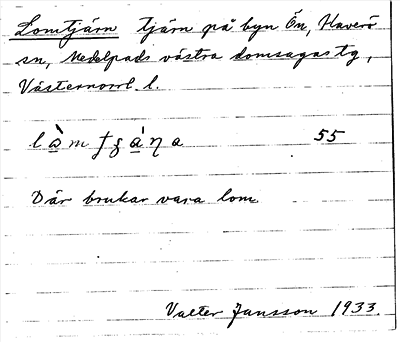 Lomtjärn tjärn på byn Ön, Haverö
sn, Medelpads västra domsagas tg,
Västernorrl. l.
55
Där brukar vara lom.
Valter Jansson 1933.